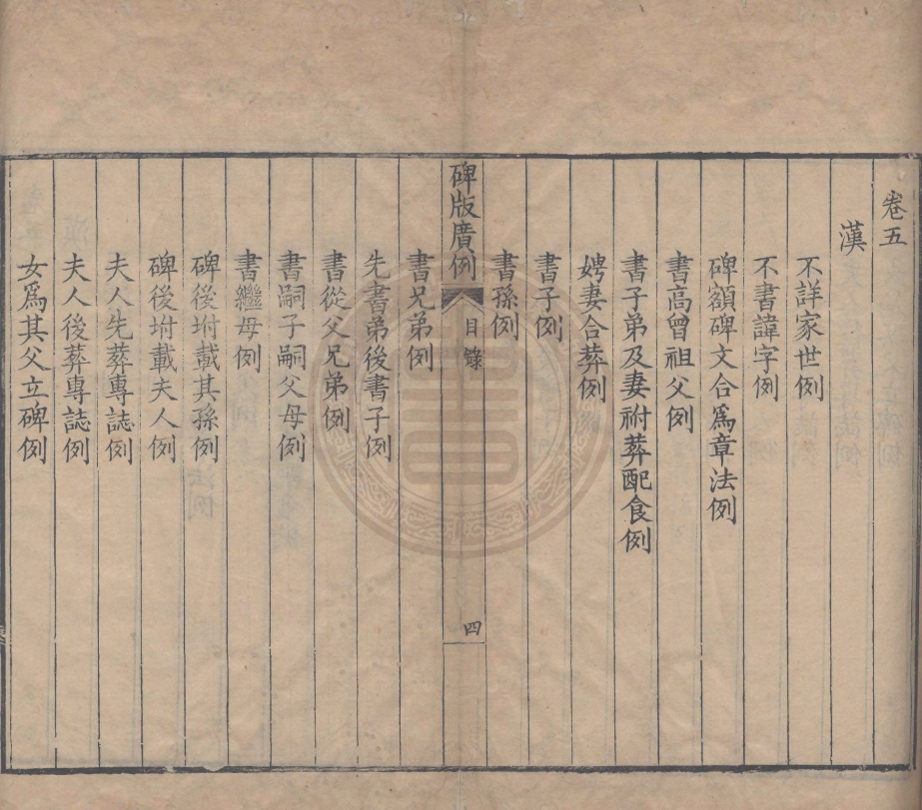 卷五
漢
不詳家世例
不書諱字例
碑額碑文合爲章法例
書高曾祖父例
書子弟及妻祔葬配食例
娉妻合葬例
書子例
書孫例
碑版廣例
目錄
四
書兄弟例
先書弟後書子例
書從父兄弟例
書嗣子嗣父母例
書繼母例
碑後坿載其孫例
碑後坿載夫人例
夫人先葬專誌例
夫人後葬專誌例
女爲其父立碑例